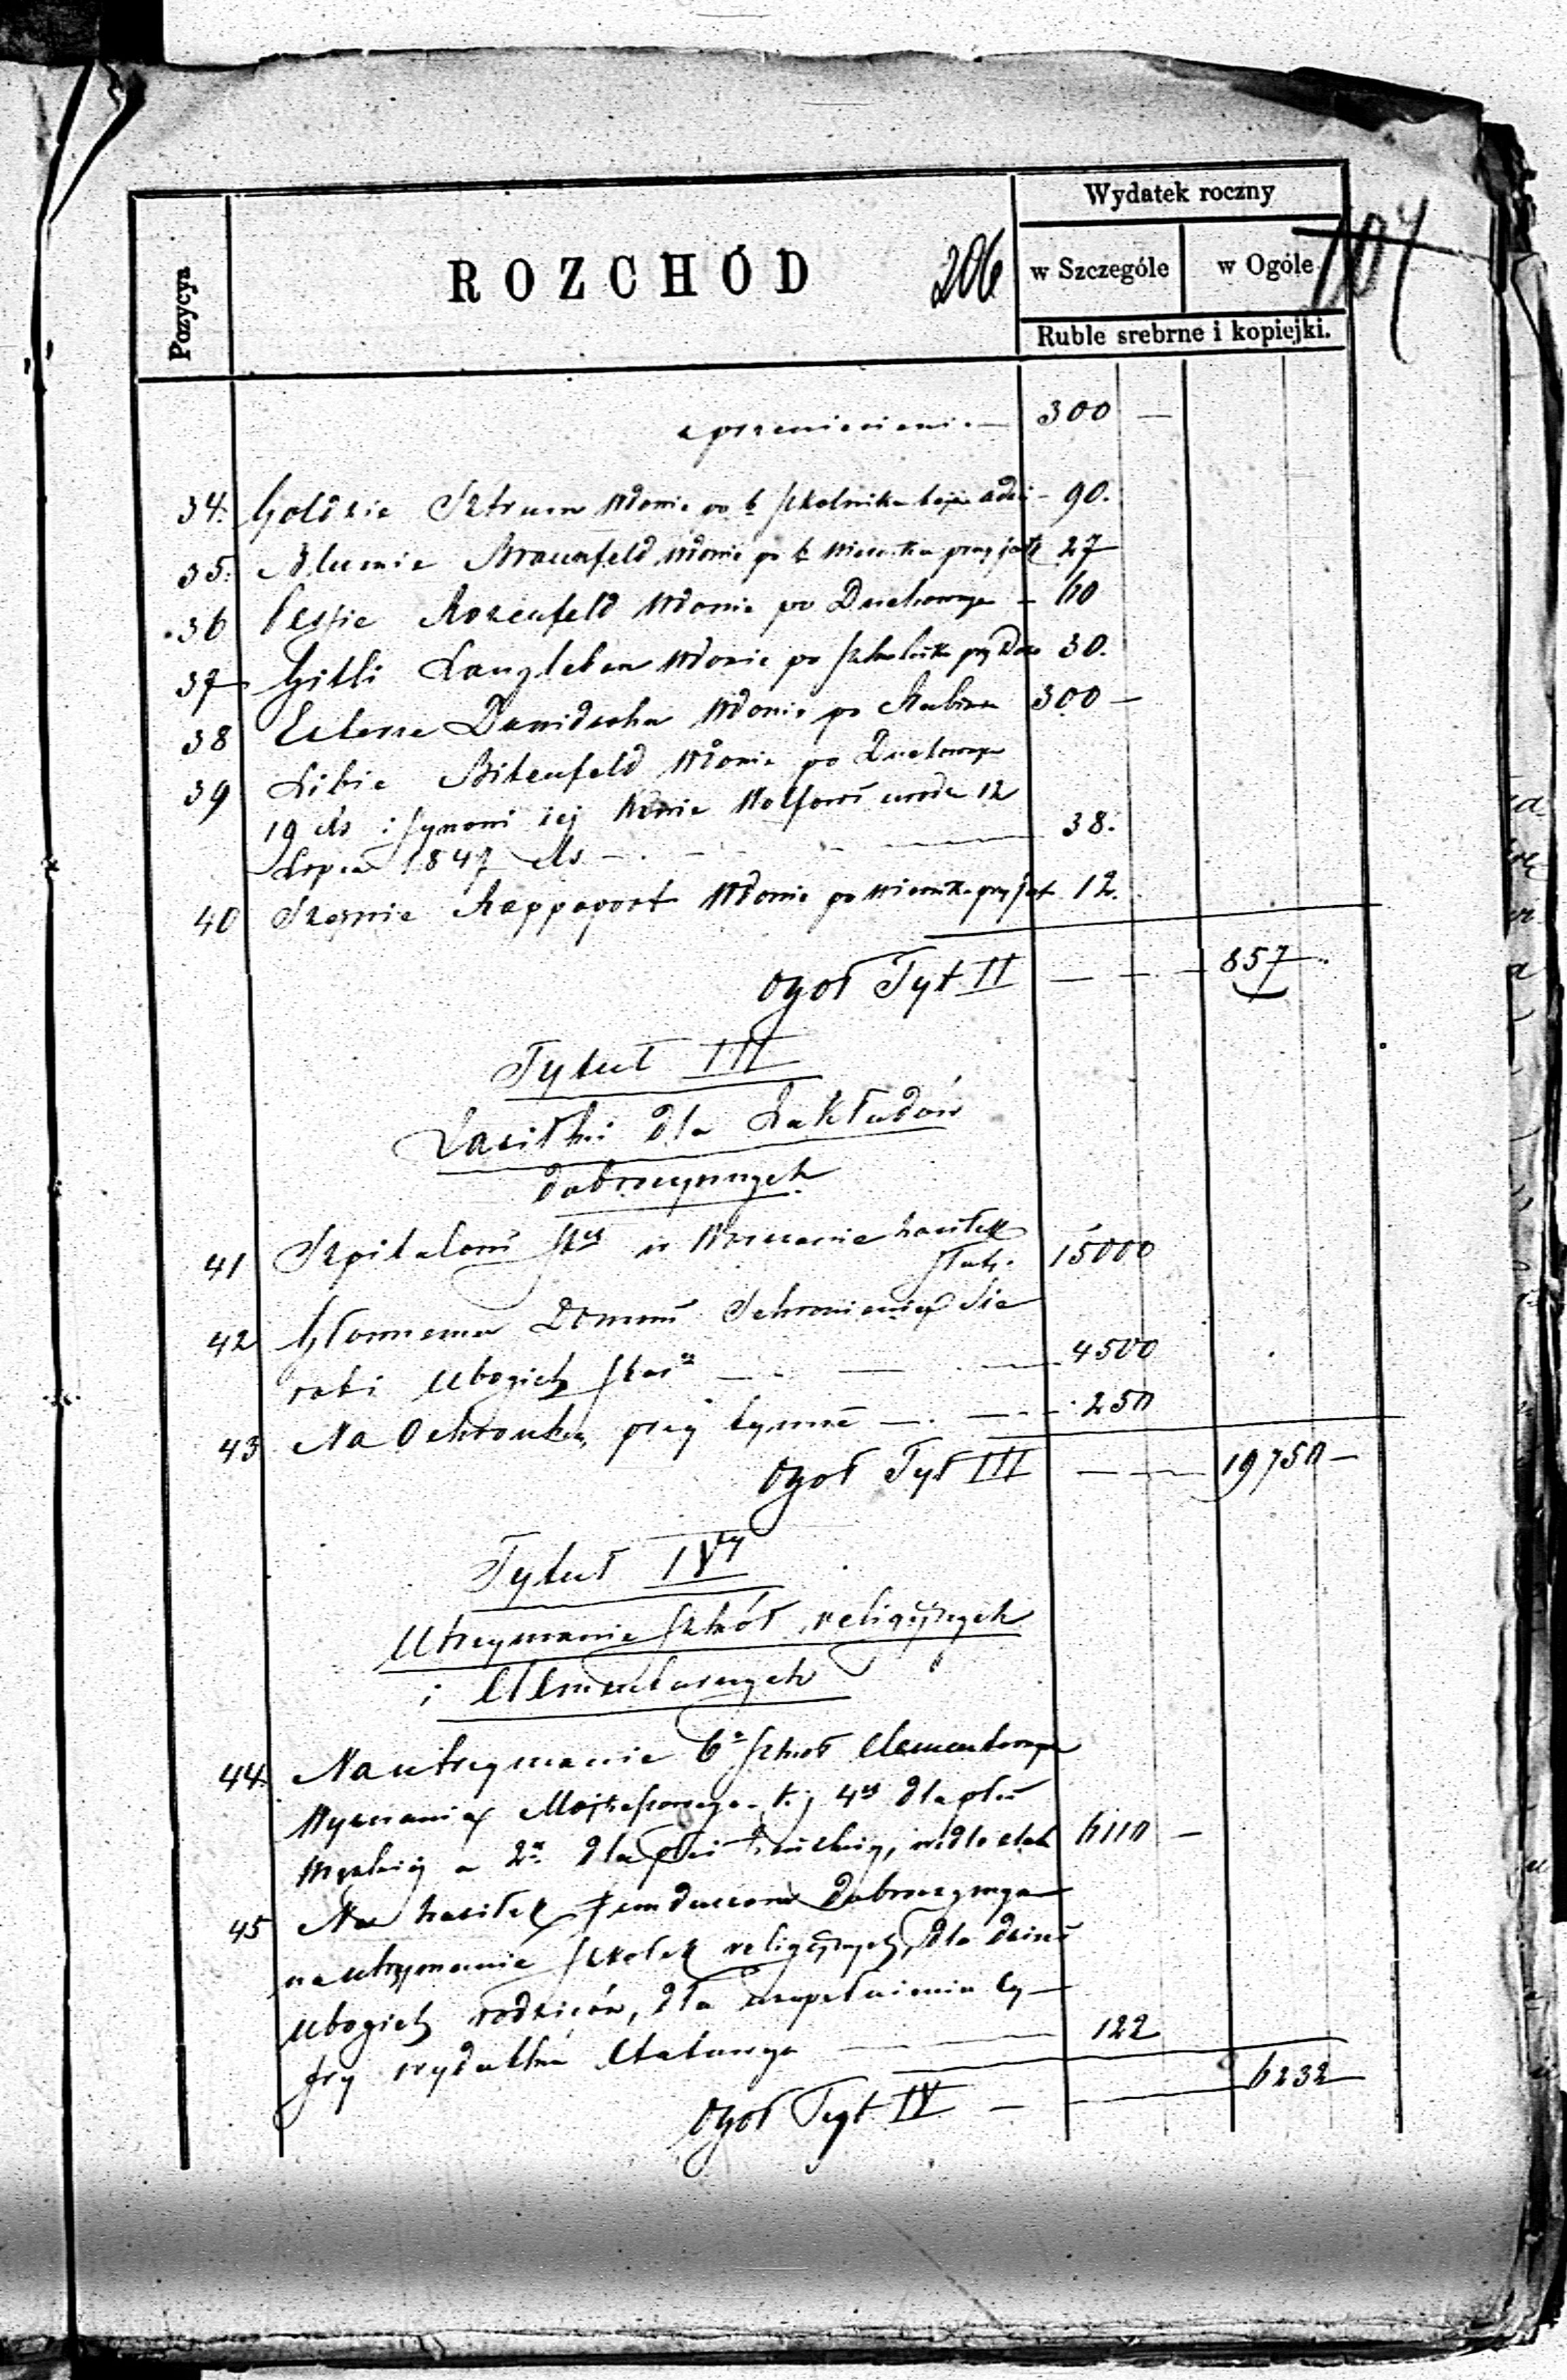 Wydatek roczny
Pozycya
ROZCHÓD
206
w Szczególe
w Ogóle
107
Ruble srebrne i kopiejki.
z przeniesieni. — 300 —
34. Goldzie Sztrum Wdowie po b szkolniku – 90.
35. Blumie Braunfeld Wdowie po b przyjętą 27
36 Pessie Rozenfeld Wdowie po Duchownym – 60
37 Gitli Langleben Wdowie po szkolniku przy 30.
38 Esterze Dawidsohn Wdowie po Rabinie 300 —
39 Libie Bitenfeld Wdowie po Duchownym
19 i synowi jej Wolfowi urodz 12
Lipca 1847 38.
40 Rappaport Wdowie po 12.
Ogoł Tyt II — — — 857
Tytuł III
Zasiłki dla Zakładów
dobroczynnych
41 Szpitalowi w Warszawie zasiłek
15000
42 Głównemu Domowi Schronienia Sie
rot i Ubogich 4500
43 Na Ochronkę przy tymże — 250
Ogoł Tyt III — — 19750 —
Tytuł IVy
Utrzymanie szkół religijnych
i Elementarnych
44. Na utrzymanie 6 szkół Elementarnych
Wyznania Mojżeszowego t. j 4 dla płci
Męzkiej a 2 dla płci żeńskiej, wedle etatu 6110 —
45 Na zasiłek funduszom Dobroczynnym
na utrzymanie szkółek religijnych, dla dzieci
Ubogich rodziców, dla uzupełnienia cy—
fry wydatku Etatowego 122
Ogoł Tyt IV — 6232